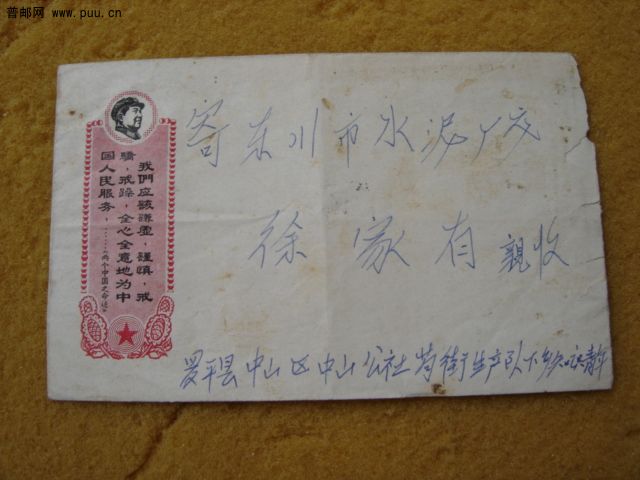 普邮网 www.puu.cn
寄东川市水泥厂交
徐家有 親收
我們应該謙虛,謹慎,戒
驕,戒躁,全心全意地为中
国人民服务,……《两个中国之命运》
罗平县中山区中山公社 街生产队下乡知识青年